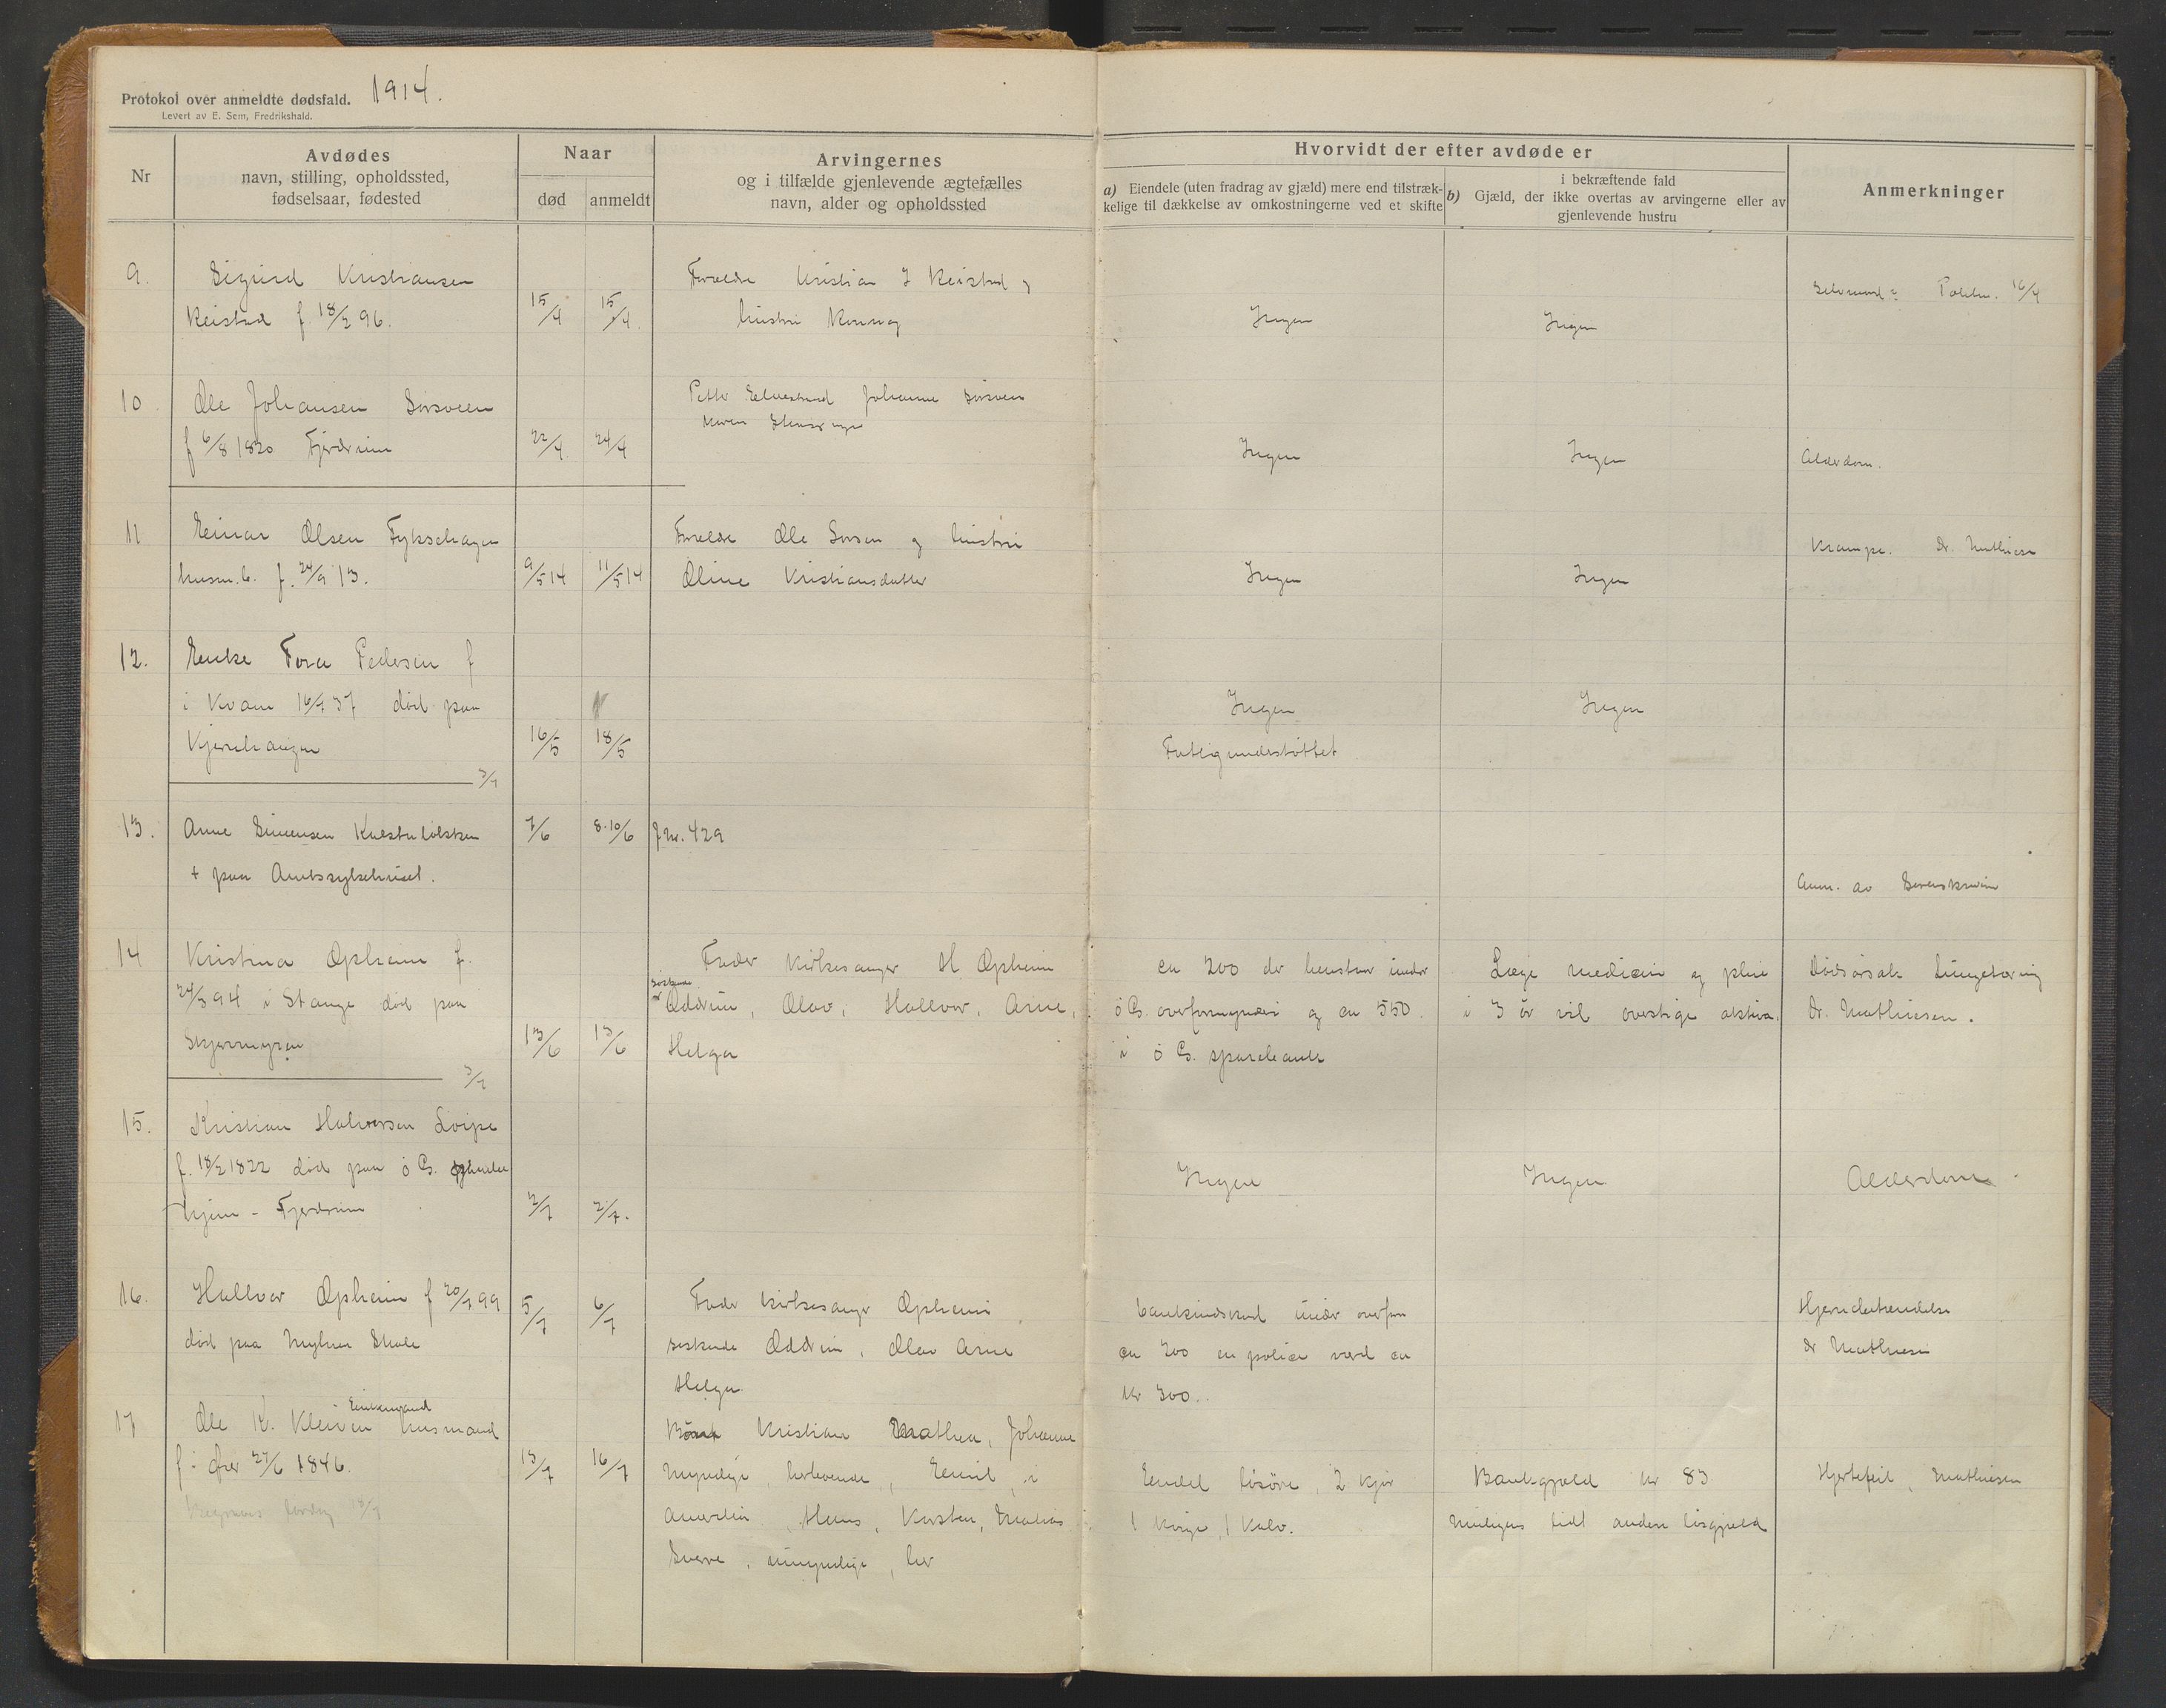 Protokol over anmeldte dødsfald. 1914.
Levert av E. Sem, Fredrikshald.
Nr
Avdødes
navn, stilling, opholdssted,
fødselsaar, fødested
Naar
død
anmeldt
Arvingernes
og i tilfælde gjenlevende ægtefælles
navn, alder og opholdssted
Hvorvidt der efter avdøde er
a) Eiendele (uten fradrag av gjæld) mere end tilstræk-
kelige til dækkelse av omkostningerne ved et skifte
i bekræftende fald
b) Gjæld, der ikke overtas av arvingerne eller av
gjenlevende hustru
Anmerkninger
9. Sigurd Kristiansen
Keistad f. 18/2 96.
15/4
15/4.
Forældre Kristian J Keistad og
hustru
Ingen
Ingen
16/4
10 Ole Johansen Sørsveen
f 6/8 1820 Fjerdrum
22/4.
24/4
Petter Johanne Sørsveen
Maren
Ingen
Ingen
Alderdom.
11 Einar Olsen
husm.b. f. 24/9 13.
9/5 14
11/5 14
Forældre Ole Larsen og hustru
Oline Kristiansdatter
Ingen
Ingen
Krampe. Dr. Mathiesen
12. Enke Tora Pedersen f
i Kvam 16/7 37 død paa
Kjernehaugen
16/5
18/5
Ingen
Fatigunderstøttet
Ingen
3/7
13. Arne Simensen
+ paa Amtssykehuset.
7/6
8-10/6
J.nr. 429
Anm. av Sorenskriveren
14 Kristina Opheim f.
24/3 94 i Stange død paa
Skjermyren
13/6
13/6
Fader Kirkesanger H Opheim
søskende
Oddrun, Olav, Hallvor, Arne,
Helga
ca 200 der henstaar under
ø G. overformynderi og ca 550.
i ø G. sparebank
Læge medicin og pleie
i 3 år vil overstige aktiva.
Dødsårsak Lungetæring
dr. Mathiesen.
3/7
15. Kristian Halvorsen Løipe
f. 18/2 1822 død paa ø G.
hjem - Fjerdrum
2/7
2/7.
Ingen
Ingen
Alderdom
16. Hallvor Opheim f 20/7 99
død paa Skole
5/7
6/7
Fader kirkesanger Opheim
søskende Oddrun, Olav Arne
Helga
under overfor
ca 200 en police værd ca
kr 300.
Hjernebetændelse
dr Mathiesen
Enkemand
17 Ole K. Kleiven husmand
f i Øier 27/6 1846.
13/7
16/7
Børn Kristian Mathea, Johanne
myndige, herboende, Emil, i
Amerika, Hans, Karsten, Mathias
Sverre, umyndige, her
Endel løsøre, 2 kjør
1 kvige, 1 kalv.
Bankgjæld kr 83
muligens lidt anden løsgjæld
Hjertefeil, Mathiesen